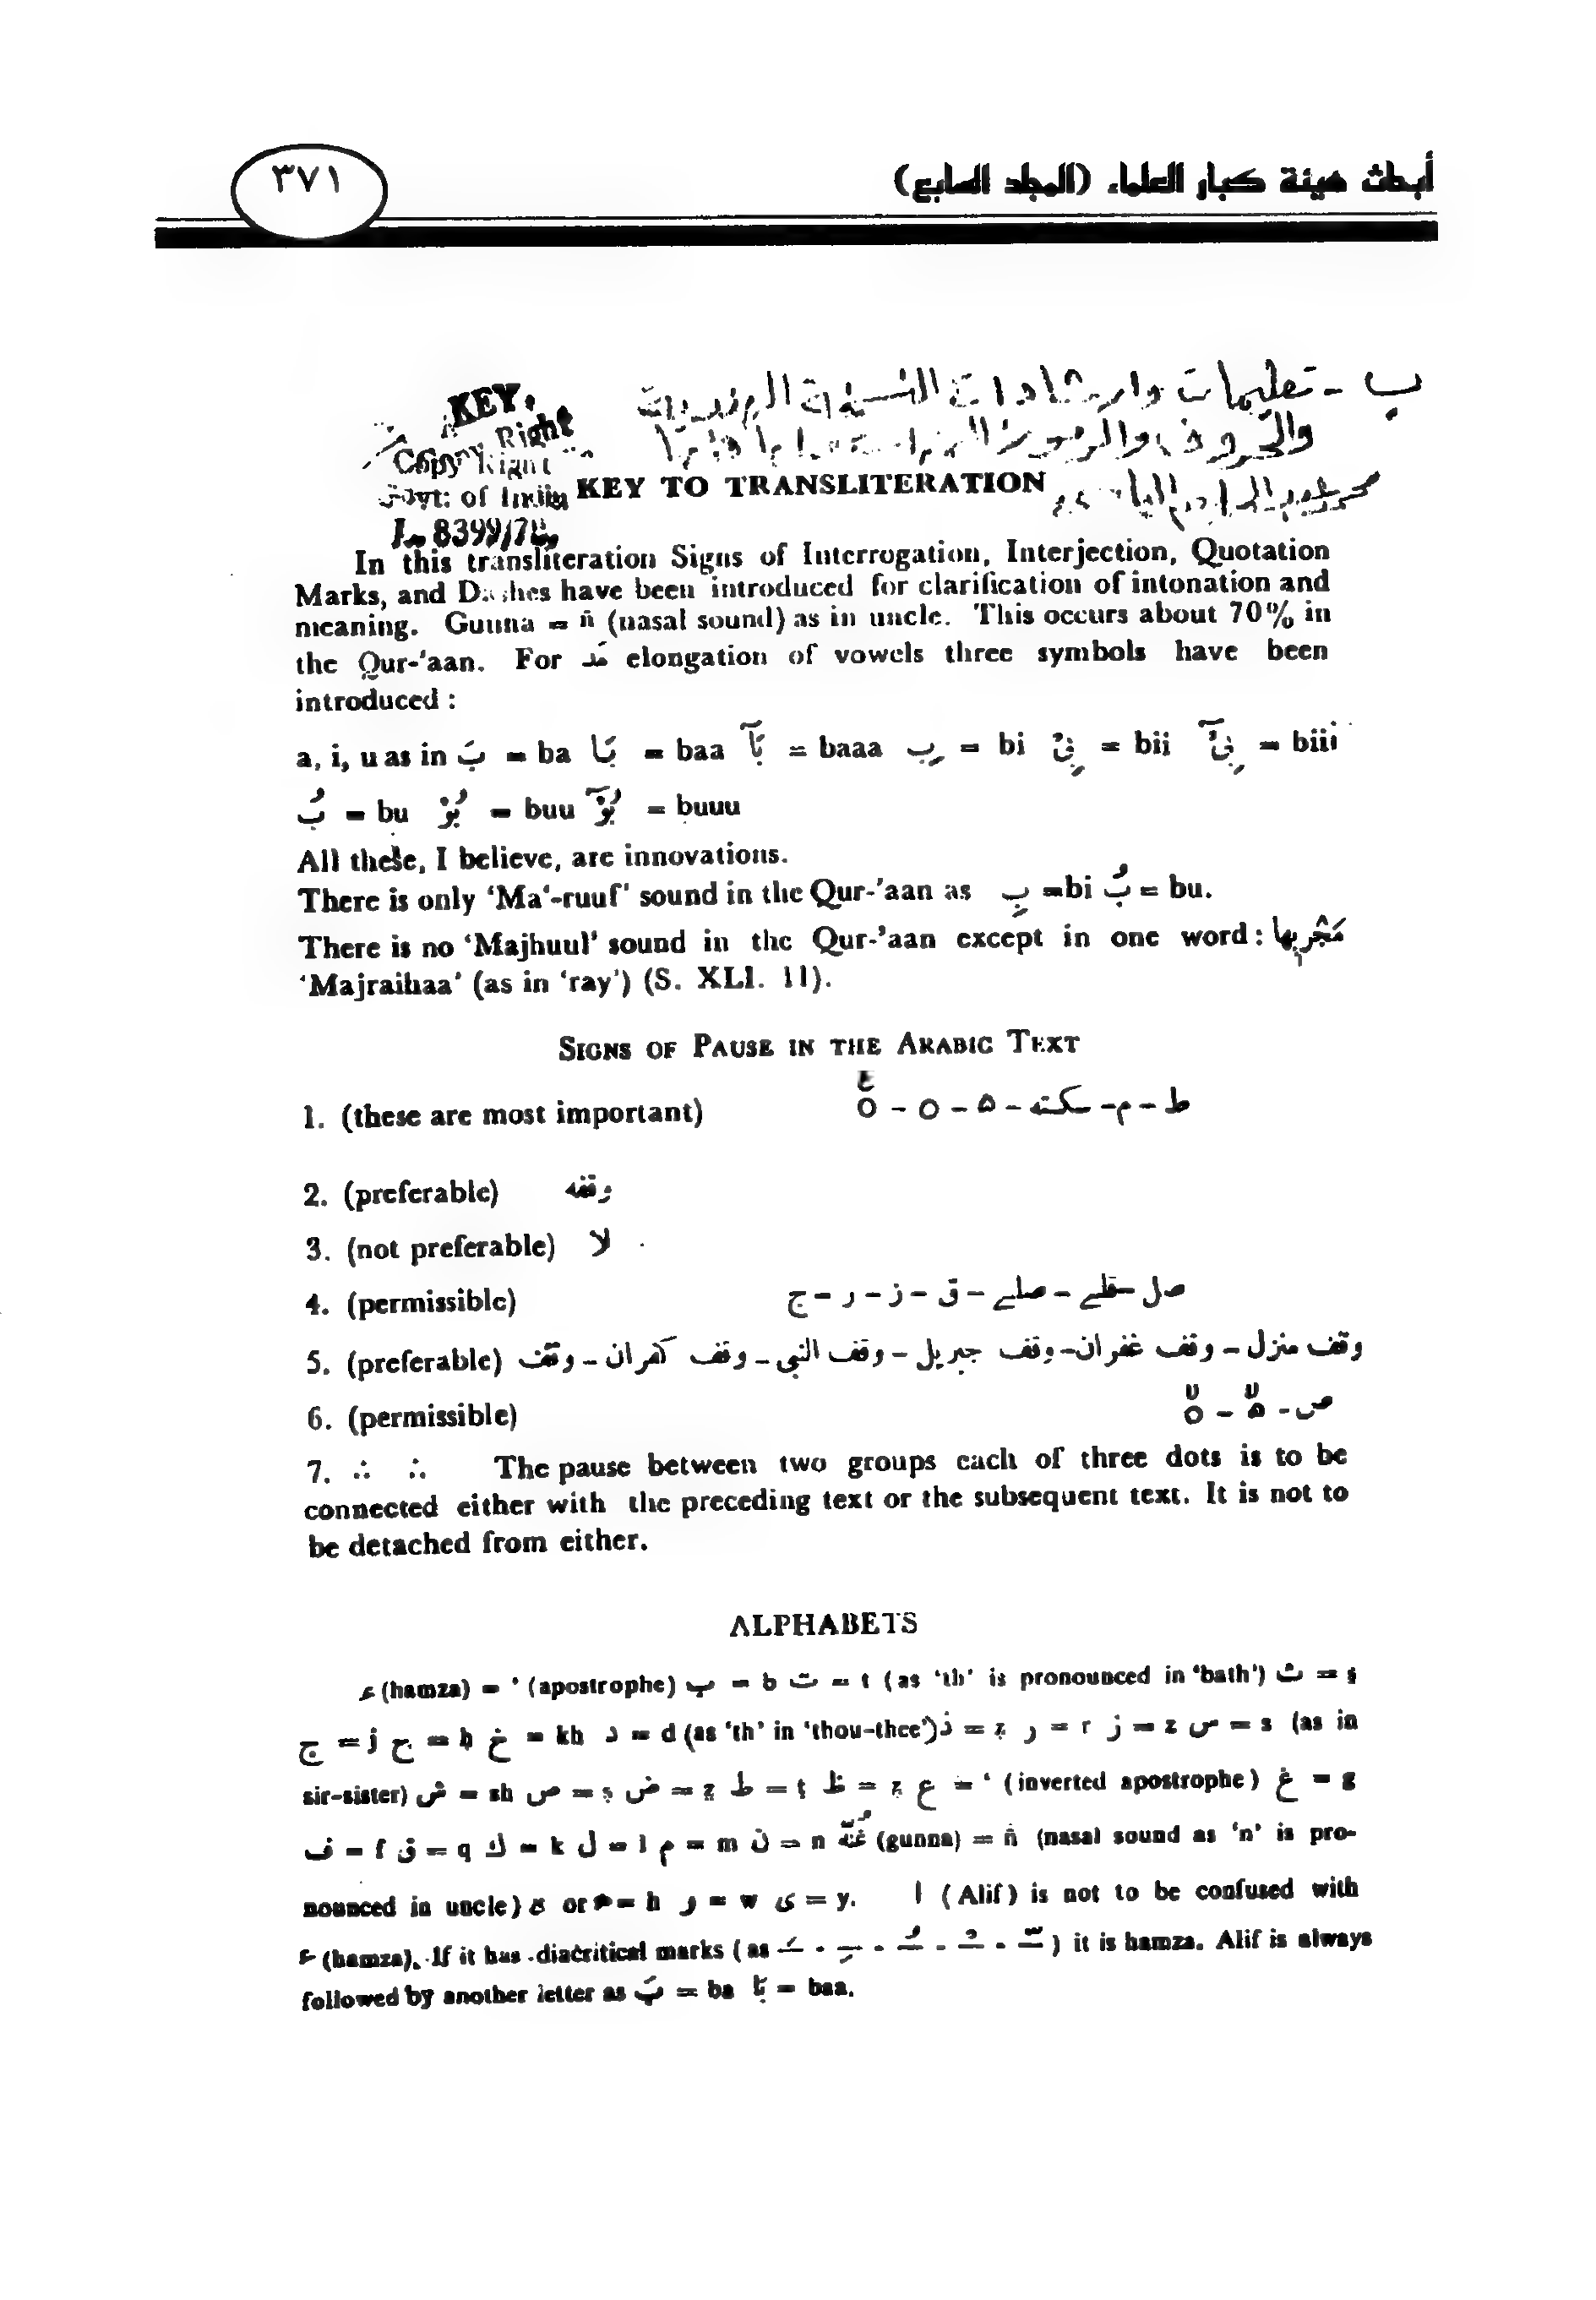 أبحاث هيئة كبار العلماء (المجلد السابع)
٣٧١
ب - تعليمات وإرشادات النسخة الهندية
والحروف والرموز
KEY.
Copy Right
Copy Right
Govt: of India
8399/78
KEY TO TRANSLITERATION
In this transliteration Signs of Interrogation, Interjection, Quotation
Marks, and Dashes have been introduced for clarification of intonation and
meaning. Gunna = ñ (nasal sound) as in uncle. This occurs about 70% in
the Qur-'aan. For مَد elongation of vowels three symbols have been
introduced :
a, i, u as in بَ = ba بَا = baa بَآ = baaa بِ = bi بِىْ = bii بِىْٓ = biii
بُ = bu بُوْ = buu بُوْٓ = buuu
All these, I believe, are innovations.
There is only ‘Ma‘-ruuf’ sound in the Qur-’aan as بِ =bi بُ = bu.
There is no ‘Majhuul’ sound in the Qur-’aan except in one word: مَجْرٖىهَا
‘Majraihaa’ (as in ‘ray’) (S. XLI. 11).
SIGNS OF PAUSE IN THE ARABIC TEXT
1. (these are most important) ط - م - سكته - ۵ - ○ - ○ ع
2. (preferable) وقفه
3. (not preferable) لا
4. (permissible) صل - قلے - صلے - ق - ز - ر - ج
5. (preferable) وقف منزل - وقف غفران - وقف جبريل - وقف النبي - وقف كفران - وقف
6. (permissible) ص - ۵ - ○
7. ∴ ∴ The pause between two groups each of three dots is to be
connected either with the preceding text or the subsequent text. It is not to
be detached from either.
ALPHABETS
ء (hamza) = ’ (apostrophe) ب = b ت = t (as ‘th’ is pronounced in ‘bath’) ث = s̤
ج = j ح = ḥ خ = kh د = d (as ‘th’ in ‘thou-thee’) ذ = ẓ ر = r ز = z س = s (as in
sir-sister) ش = sh ص = ṣ ض = ẓ ط = ṭ ظ = ẓ ع = ‘ (inverted apostrophe) غ = g
ف = f ق = q ك = k ل = l م = m ن = n غُنَّة (gunna) = ñ (nasal sound as ‘n’ is pro-
nounced in uncle) ة or ه = h و = w ى = y. ا (Alif) is not to be confused with
ء (hamza). If it has diacritical marks (as ـَ - ـِ - ـُ - ـْ - ـّ) it is hamza. Alif is always
followed by another letter as بَ = ba بَا = baa.